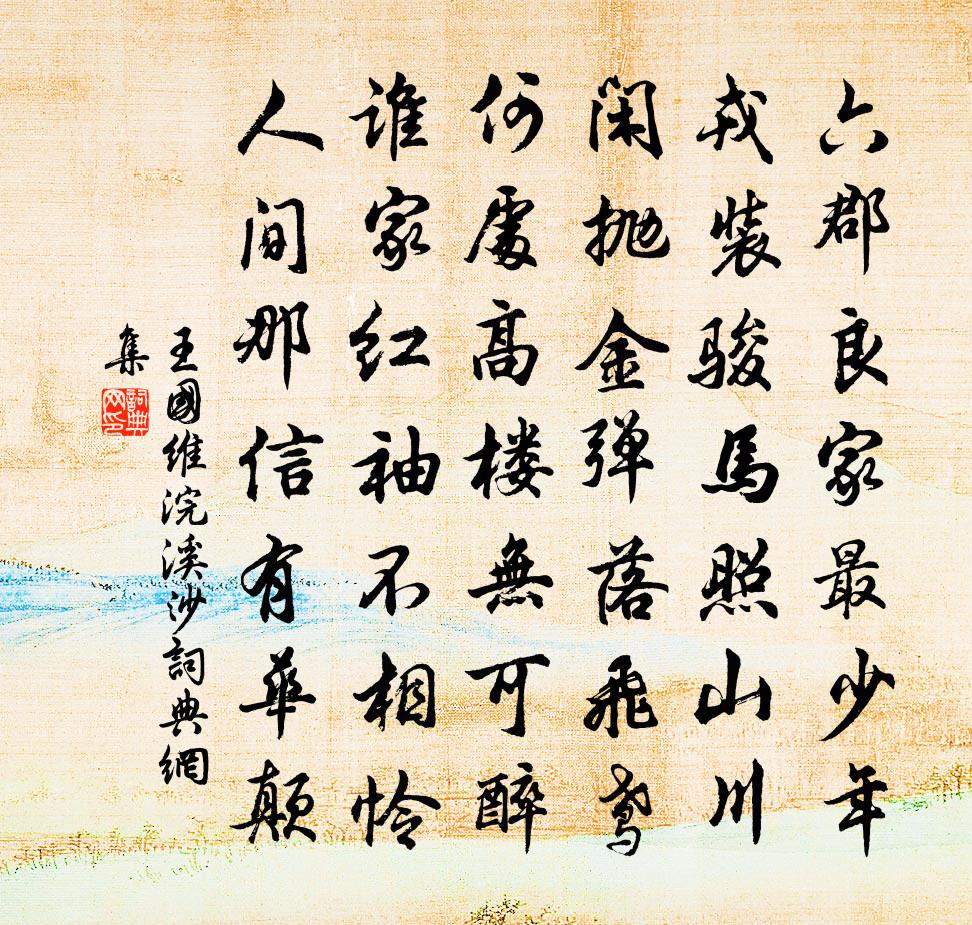 六郡良家最少年
戎装骏馬照山川
闲抛金弹落飛鸢
何處高楼無可醉
谁家红袖不相怜
人间那信有華颠
王國维浣溪沙詞典網
集
詞典網印